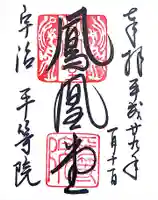 奉拝
平成廿九年
一月十一日
鳳凰堂
宇治 平等院